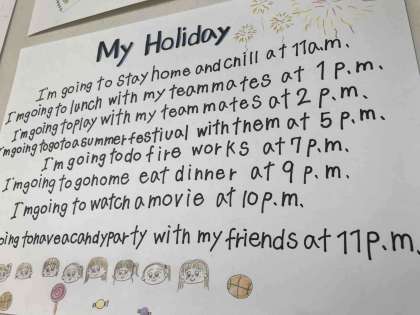 My Holiday
I'm going to stay home and chill at 11a.m.
I'm going to lunch with my teammates at 1 p.m.
I'm going to play with my teammates at 2 p.m.
I'm going to go to a summer festival with them at 5 p.m.
I'm going to do fire works at 7 p.m.
I'm going to go home eat dinner at 9 p.m.
I'm going to watch a movie at 10 p.m.
going to have a candy party with my friends at 11 p.m.